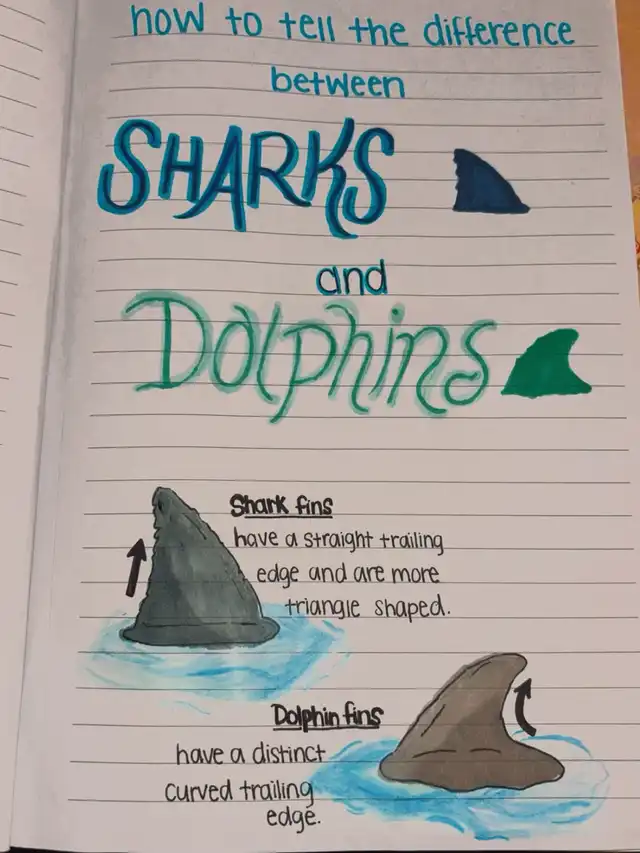 how to tell the difference
between
SHARKS
and
Dolphins
Shark fins
have a straight trailing
edge and are more
triangle shaped.
Dolphin fins
have a distinct
curved trailing
edge.